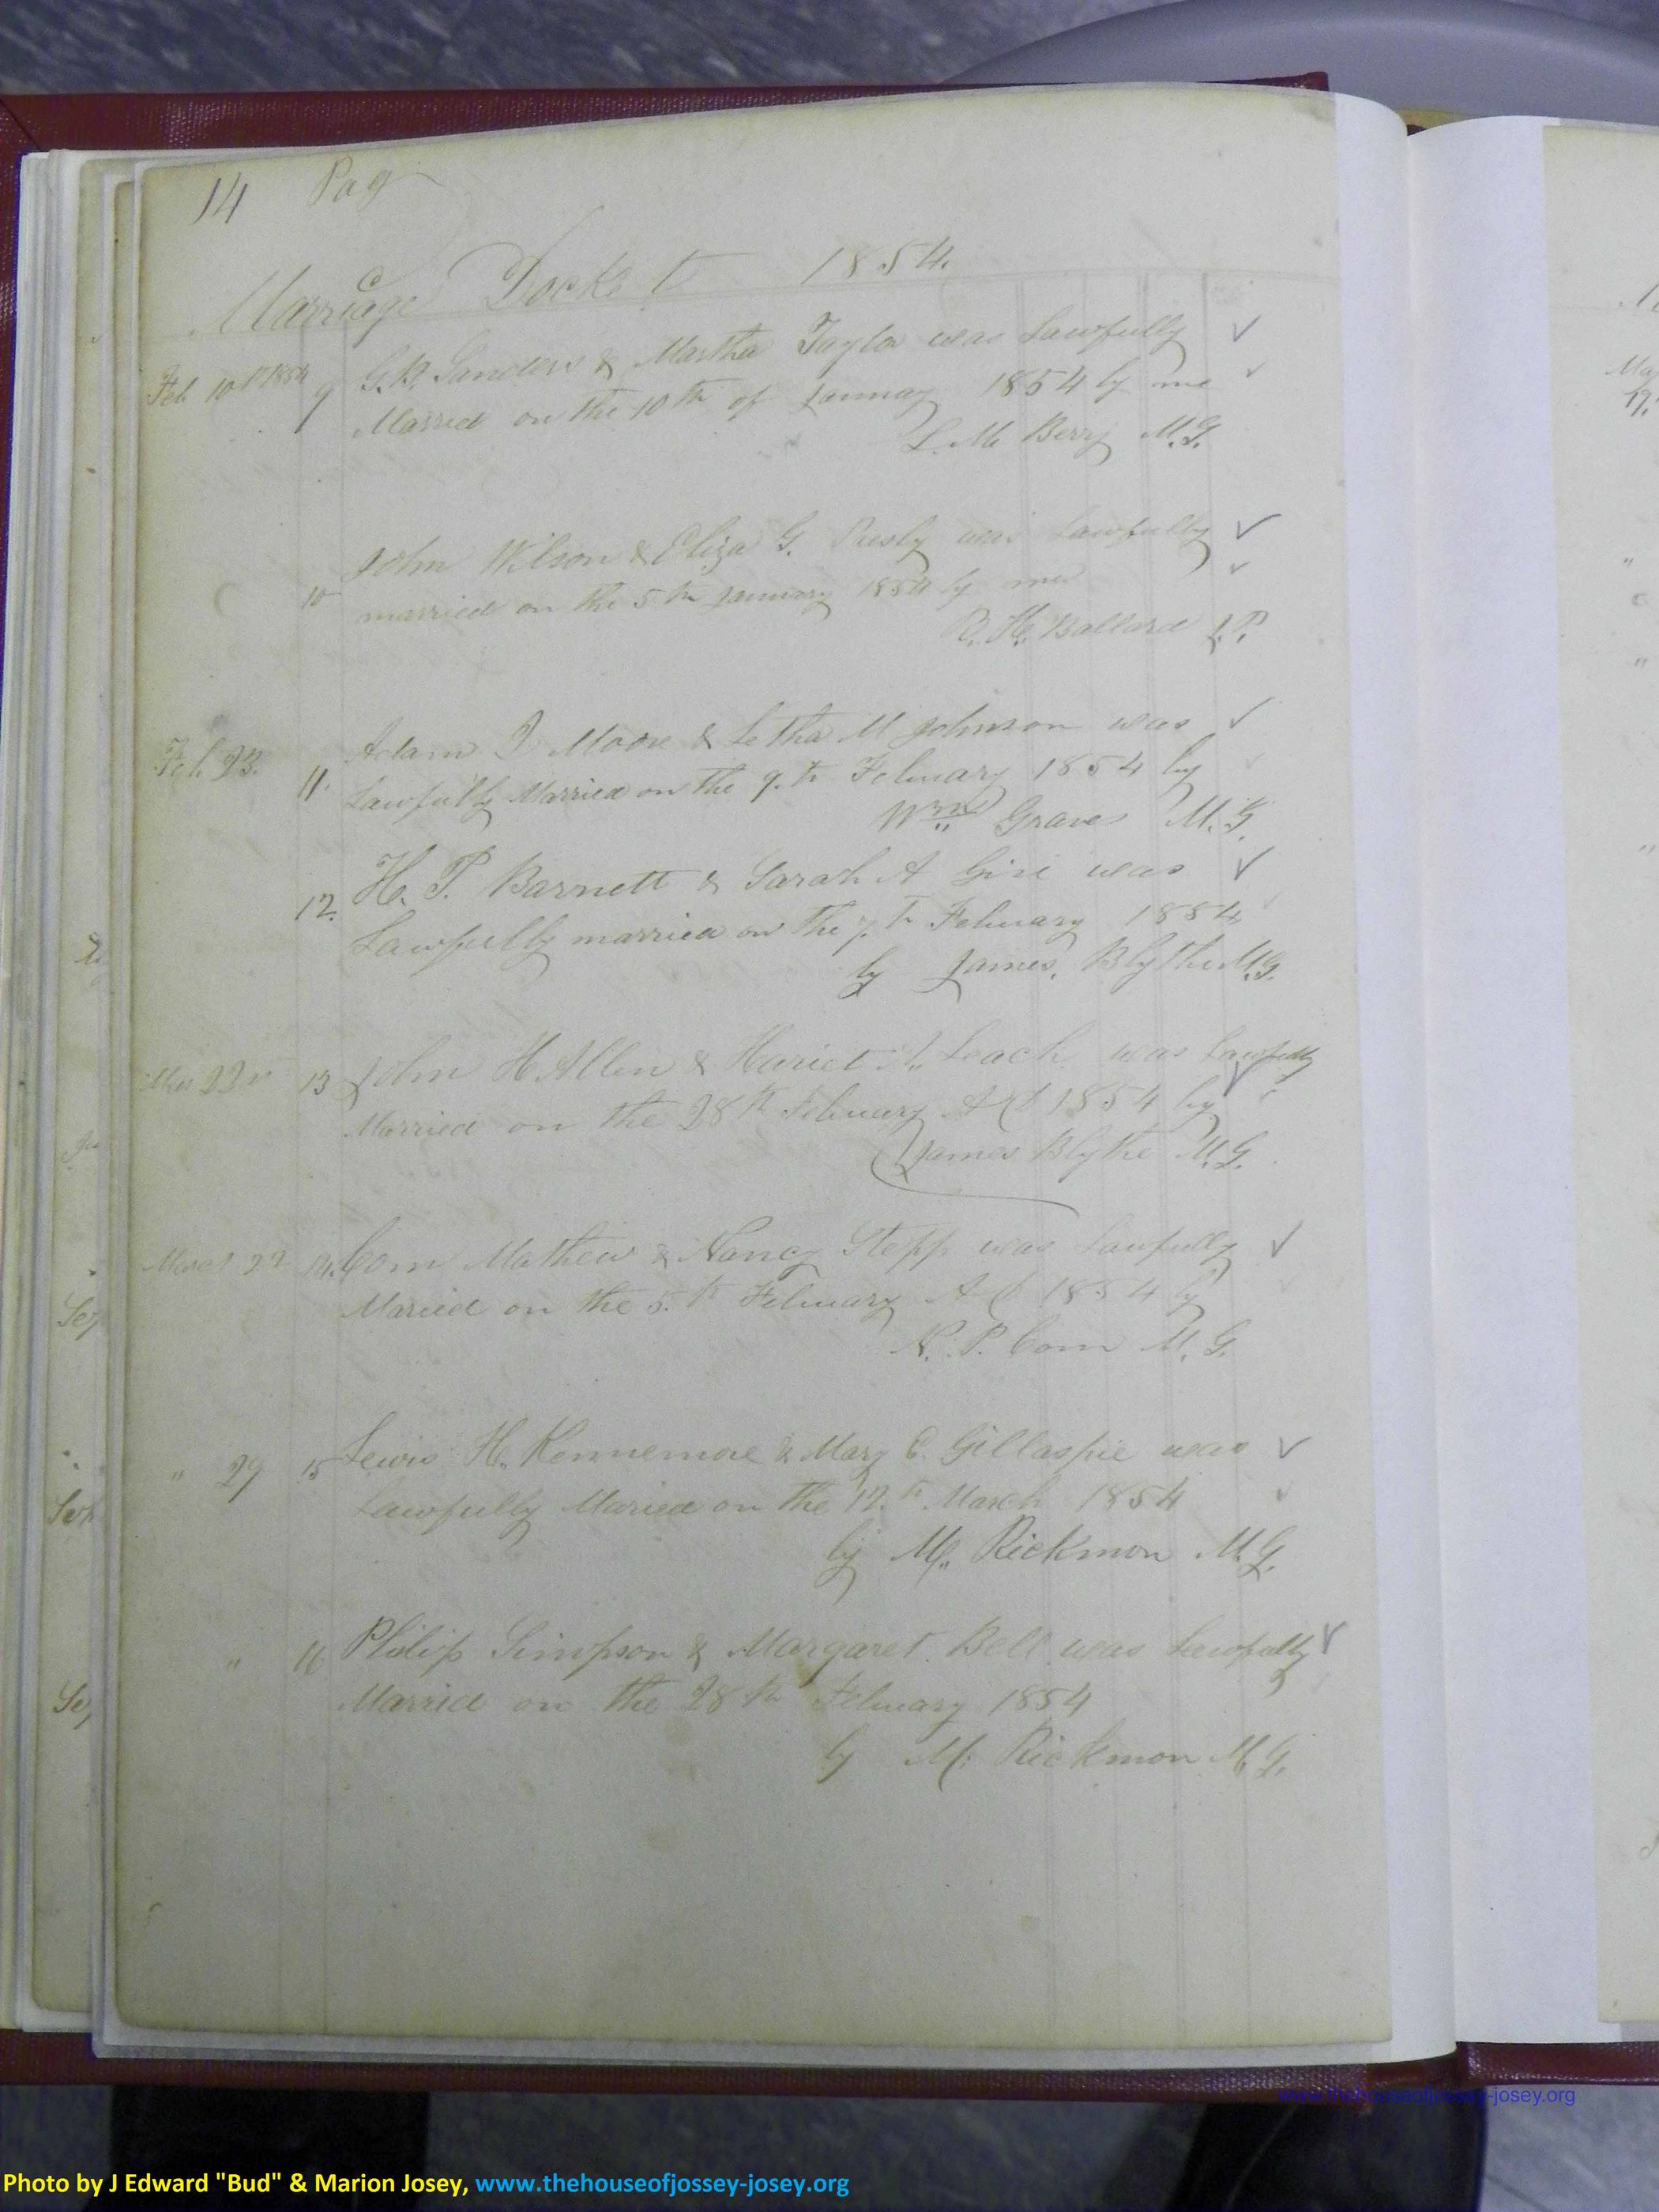 14 Pag
Marriage Docket 1854.
Feb 10th 1854 9 G. B. Sanders & Martha Taylor was Lawfully
Married on the 10th of January 1854 by me
L. M. Berry M.G.
John Wilson & Eliza G. Presly was Lawfully
10 married on the 5th January 1854 by me
R. H. Ballard J.P.
Adam J Moore & Letha M Johnson was
Feb. 23. 11. Lawfully Married on the 9.th February 1854 by
Wm Graves M.G.
H. T. Barnett & Sarah A was
12. Lawfully married on the 7.th February 1854
by James. Blythe M.G.
Mar 22n 13 John H Allen & Hariet A. Leach was Lawfully
Married on the 28th February AD 1854 by
James Blythe M.G.
March 22 14. Corn Mathew & Nancy Stepp was Lawfully
Maried on the 5.th February AD 1854 by
N. P. Corn M.G.
" 29 15 Lewis H. Kennemore & Mary C. Gillaspie was
Lawfully Maried on the 12.th March 1854
by M. Rickmon M.G.
" 16 Philip Simpson & Margaret Bell was Lawfully
Married on the 28th February 1854
by M. Rickmon M.G.
www.thehouseofjossey-josey.org
Photo by J Edward "Bud" & Marion Josey, www.thehouseofjossey-josey.org